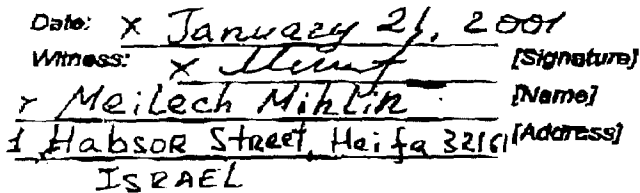 Date: x January 21, 2001
Witness: x [Signature]
x Meilech Mihlin [Name]
1 Habsor Street, Haifa 32161 [Address]
ISRAEL